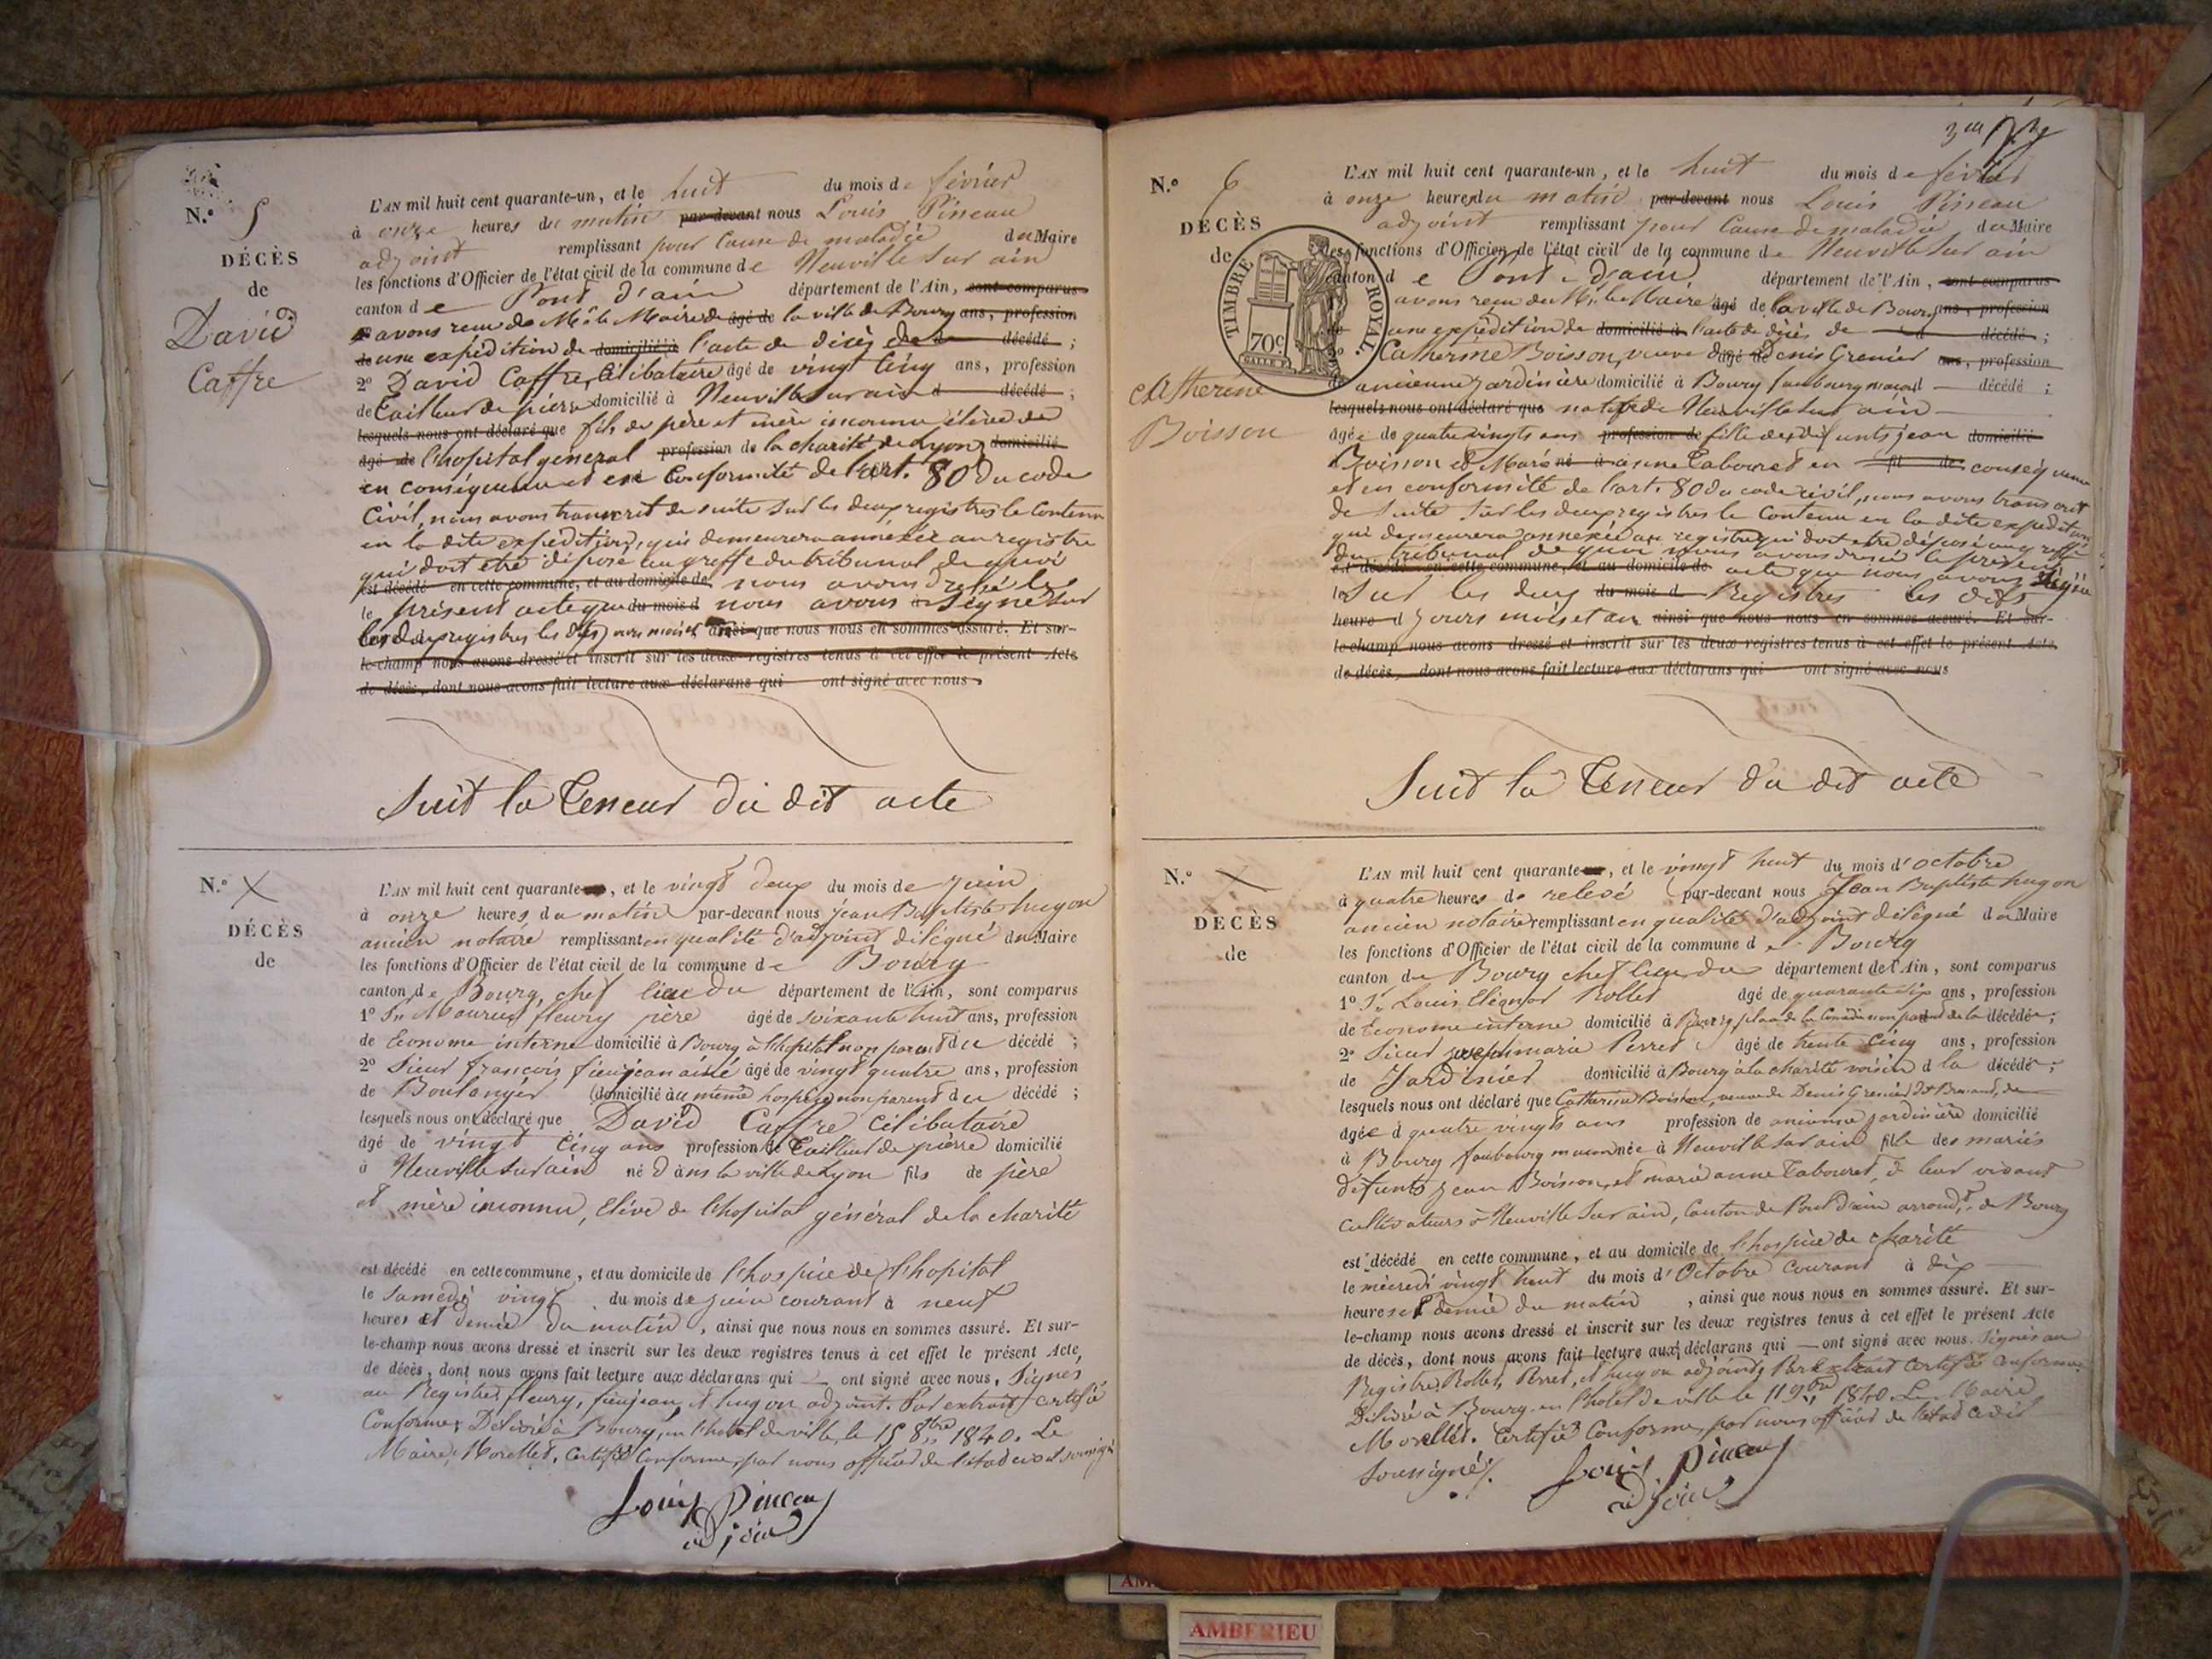 N.º 5
DÉCÈS
de
David
Caffre
L'AN mil huit cent quarante-un, et le huit du mois de février
à onze heures du matin par-devant nous Louis Pineau
adjoint remplissant pour Cause de maladie du Maire
les fonctions d'Officier de l'état civil de la commune de Neuville sur ain
canton de Pont d'ain département de l'Ain, sont comparus
avons recu de Mr le Maire de âgé de la ville de Bourg ans, profession
de une expédition de domicilié à l'acte de décès de décédé ;
2º David Caffre, Célibataire âgé de vingt cinq ans, profession
de Tailleur de pierre domicilié à Neuville sur ain d décédé ;
lesquels nous ont déclaré que fils de père et mère inconnu élève de
âgé de l'hopital général profession de la charité de Lyon, domicilié
en conséquence et en Conformité de l'art. 80 du code
Civil, nous avons transcrit de suite sur les deux registres le Contenu
en la dite expédition, qui demeurera annéxée au registre
qui doit etre déposé au greffe du tribunal de quoi
est décédé en cette commune, et au domicile de nous avons dressé le
le présent acte que du mois d nous avons à Signé sur
les deux registres les dits jour mois et an ainsi que nous nous en sommes assuré. Et sur-
le-champ nous avons dressé et inscrit sur les deux registres tenus à cet effet le présent Acte
de décès, dont nous avons fait lecture aux déclarans qui ont signé avec nous.
Suit la Teneur du dit acte
N.º X
DÉCÈS
de
L'AN mil huit cent quarante, et le vingt deux du mois de juin
à onze heures du matin par-devant nous jean Baptiste hugon
ancien notaire remplissant en qualité d'adjoint délégué du Maire
les fonctions d'Officier de l'état civil de la commune de Bourg
canton de Bourg, chef lieu du département de l'Ain, sont comparus
1º Sr Maurice fleury père âgé de soixante huit ans, profession
de Econome interne domicilié à Bourg à l'hopital non parent du décédé ;
2º Sieur françois fieujean ainé âgé de vingt quatre ans, profession
de Boulanger domicilié au même hospice non parent du décédé ;
lesquels nous ont déclaré que David Caffre Célibataire
âgé de vingt Cinq ans profession de Tailleur de pierre domicilié
à Neuville sur ain né dans la ville de Lyon fils de père
et mère inconnu, Elève de l'hopital général de la charité
est décédé en cette commune, et au domicile de l'hospice de l'hopital
le Samedi vingt du mois de juin courant à neuf
heures et demie du matin, ainsi que nous nous en sommes assuré. Et sur-
le-champ nous avons dressé et inscrit sur les deux registres tenus à cet effet le présent Acte,
de décès, dont nous avons fait lecture aux déclarans qui ont signé avec nous, Signés
au Registre, fleury, fieujean, et hugon adjoint. Par extrait certifié
Conforme. Délivré à Bourg, en l'hotel de ville, le 15 8bre 1840. Le
Maire, Morellet, Certifié Conforme, par nous officier de l'état civil soussigné
Louis Pineau
adjoint
N.º 6
DÉCÈS
de
Catherine
Boisson
TIMBRE ROYAL.
70c
L'AN mil huit cent quarante-un, et le huit du mois de février
à onze heures du matin par-devant nous Louis Pineau
adjoint remplissant pour Cause de maladie du Maire
les fonctions d'Officier de l'état civil de la commune de Neuville sur ain
canton de Pont-d'ain département de l'Ain, sont comparus
avons recu de Mr. le Maire âgé de la ville de Bourg ans, profession
de une expédition de domicilié à l'acte de décès de d décédé ;
2º Catherine Boisson, veuve d âgé de Denis Grenier ans, profession
de ancienne jardinière domicilié à Bourg faubourg macon d décédé ;
lesquels nous ont déclaré que native de Neuville sur ain
âgée de quatre vingts ans profession de fille des défunts jean domicilié
Boisson et Marie né à anne Tabouret en fil de conséquence
et en conformité de l'art. 80 du code civil, nous avons transcrit
de Suite sur les deux registres le Contenu en la dite expédition
qui demeurera annexée au registre qui doit etre déposé au greffe
du tribunal de quoi nous avons dressé le présent
est décédé en cette commune, et au domicile de acte que nous avons Signé
le Sur les deux du mois d Registres les dits
heure d jours mois et an ainsi que nous nous en sommes assuré. Et sur-
le-champ nous avons dressé et inscrit sur les deux registres tenus à cet effet le présent Acte
de décès, dont nous avons fait lecture aux déclarans qui ont signé avec nous
Suit la Teneur du dit acte
N.º X
DÉCÈS
de
L'AN mil huit cent quarante, et le vingt huit du mois d'octobre
à quatre heures de relevé par-devant nous Jean Baptiste hugon
ancien notaire remplissant en qualité d'adjoint délégué du Maire
les fonctions d'Officier de l'état civil de la commune de Bourg
canton de Bourg chef lieu du département de l'Ain, sont comparus
1º Sr. Louis Rollet âgé de quarante dix ans, profession
de Econome interne domicilié à Bourg, place de la Comédie non parent de la décédée ;
2º Sieur joseph marie Perret âgé de trente Cinq ans, profession
de Jardinier domicilié à Bourg à la charité voisin d la décédée ;
lesquels nous ont déclaré que Catherine Boisson, veuve de Denis Grenier dit de
âgée d quatre vingts ans profession de ancienne jardinière domicilié
à Bourg faubourg macon née à Neuville sur ain fille des mariés
défunts jean Boisson, et marie anne Tabouret, de leur vivant
Cultivateurs à Neuville sur ain, Canton de Pont d'ain arrondt. de Bourg
est décédé en cette commune, et au domicile de l'hospice de charité
le mécredi vingt huit du mois d'Octobre courant à dix
heures et demie du matin, ainsi que nous nous en sommes assuré. Et sur-
le-champ nous avons dressé et inscrit sur les deux registres tenus à cet effet le présent Acte
de décès, dont nous avons fait lecture aux déclarans qui ont signé avec nous. Signés au
Registre, Rollet, Perret, et hugon adjoint, Par Extrait Certifié Conforme.
Délivré à Bourg en l'hotel de ville le 11 9bre 1840. Le Maire
Morellet. Certifié Conforme, par nous officier de l'état civil
soussigné.
Louis Pineau
adjoint
AMBERIEU